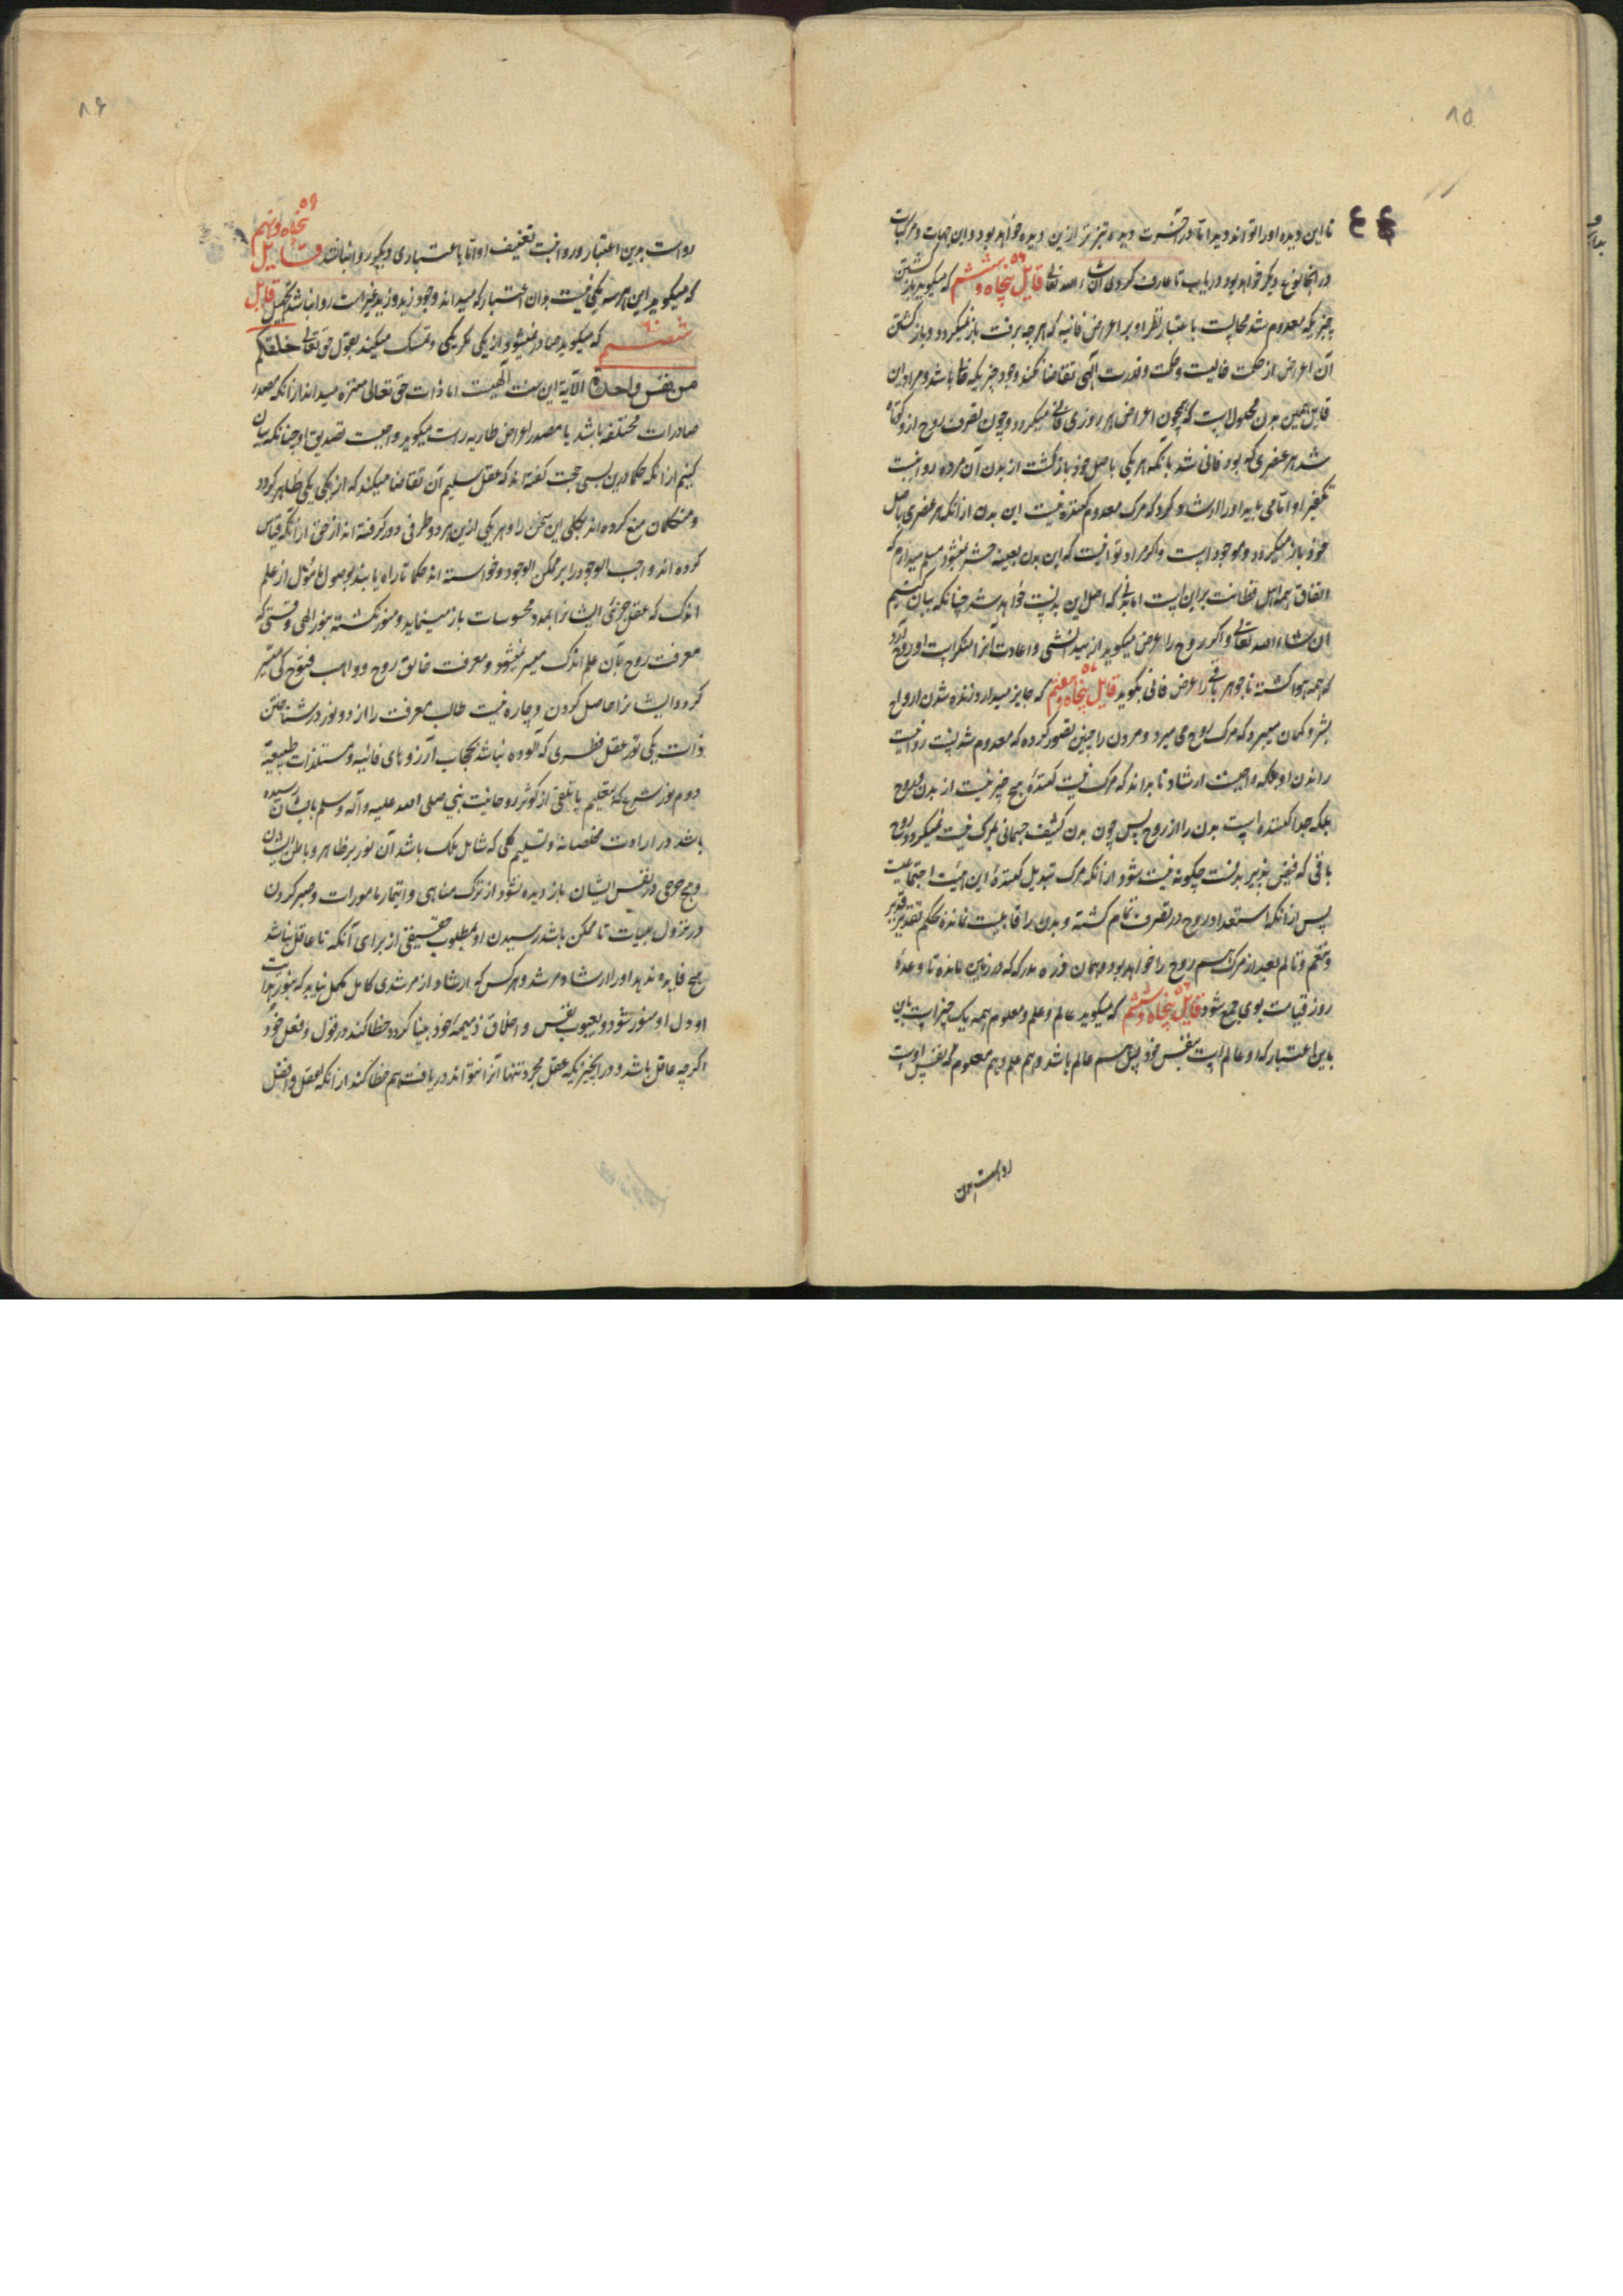 ۸۵
تا این دیده او را تواند دید اما در آخرت دیده تیزتر ازین دیده خواهد بود و این جهات و مرکبات
در آنجا نوع دیگر خواهد بود دریاب تا عارف گردی ان شاء الله تعالی قایل پنجاه و ششم که میگوید باز گشتن
چیزیکه معدوم شد محالست باعتبار نظر او بر اعراض فانیه که هرچه برفت باز نمیگردد و باز گشتن
آن اعراض از حکمت خالیست و حکمت و قدرت الهی تقاضا نکند وجود چیزیکه باشد و مراد این
قایل همین بدن محمولست که همچون اعراض هر روزی فانی میگردد و چون تصرف روح ازو کوتاه
شد هر عنصری که بود فانی شد بآنکه هر یکی باصل خود باز گشت از بدن آن مرده روا نیست
تکفیر او اما می باید او را ارشاد کرد که مرگ معدوم کننده نیست این بدن از آنکه هر عنصری باصل
خود باز میگردد و موجود است و اگر مراد تو آنست که این بدن بعینه حشر نشود مسلم میدارم که
اتفاق همه اهل فطانت براین است که اصل این بدنست خواهد شد چنانکه بیان کنیم
ان شاء الله تعالی و اگر روح را عرض میگوید از میدانشی و اعادت آنرا منکر است او روح
که همه هوا گشته تا جوهر باقی را عرض فانی بگوید قایل پنجاه و هفتم که جایز میدارد زنده شدن ارواح
بشر و گمان میبرد که مرگ روح می میرد و مردن را چنین تصور کرده که معدوم شد نیست روا نیست
راندن او بلکه واجبست ارشاد تا بداند که مرگ نیست کننده هیچ چیز نیست از بدن و روح
بلکه جدا کننده است بدن را از روح پس چون بدن کثیف جسمانی بمرگ نیست نمیگردد روح
باقی که فیض پذیر بدنست چگونه نیست شود از آنکه مرگ تبدیل کننده این هیئت اجتماعیت
پس از آنکه استعداد روح در تصرف تمام گشته و بدن را قابلیت نمانده بحکم تقدیر قدیر
و تنعم و تالم بعد از مرگ هم روح را خواهد بود و همان ذره مدرکه که در زمین مانده تا وعده
روز قیامت بوی جمع شود قایل پنجاه و هشتم که میگوید عالم و علم و معلوم همه یک چیز است باین
باین اعتبار که او عالم است بنفس خود پس هم عالم باشد و هم علم و هم معلوم که نفس اوست
۸۶
رواست بدین اعتبار و روا نیست تعنیف او اما باعتباری دیگر روا نباشد قایل پنجاه و نهم
که میگوید این هرسه یکی نیست بدان اعتبار که میداند وجود زید و زید غیر است روا نباشد قایل
شصتم که میگوید صادر نمیشود از یکی مگر یکی و تمسک میکند بقول حق تعالی خلقکم
من نفس واحدة الآیة این سنت الهیست اما ذات حق تعالی منزه میداند از آنکه مصدر
صادرات مختلفه باشد یا مصدر اعراض طاریه راست میگوید واجبست تصدیق او چنانکه بیان
کنیم از آنکه حکما درین بسی حجت گفته اند که عقل سلیم آن تقاضا میکند که از یکی یکی ظاهر گردد
و متکلمان منع کرده اند بکلی این سخن را و هر یکی ازین هر دو طرفی دور گرفته اند از حق از آنکه قیاس
کرده اند واجب الوجود را بر ممکن الوجود و خواسته اند حکما تا راه یابند بوصول از علم
اندک که عقل جزئی ایشانرا بمدد محسوسات باز مینماید و منور نگشته بنور الهی وقتی که
معرفت روح بآن علم اندک میسر نمیشود معرفت خالق روح و واهب فتوح کی میسر
گردد ایشانرا حاصل کردن و چاره نیست طالب معرفت را از دو نور در شناختن
ذات یکی نور عقل فطری که آلوده نباشد بحجاب آرزوهای فانیه و مستلذات طبیعیه
دوم نور شرع که بتعلیم یا تلقی از کوثر روحانیت نبی صلی الله علیه و آله وسلم بایشان رسیده
باشد در ارادت مخلصانه و تسلیم کلی که شامل باشد آن نور بر ظاهر و باطن ایشان
و هیچ حرجی در نفس ایشان باز دیده نشود از ترک مناهی و ایتمار مامورات و صبر کردن
در نزول بلیات تا ممکن باشد رسیدن او بمطلوب حقیقی از برای آنکه تا عاقل نباشد
هیچ فایده ندهد او را ارشاد مرشد و هرکس که ارشاد از مرشدی کامل مکمل نیابد که بنور
او دل او منور شود و بعیوب نفس و اخلاق ذمیمه خود بینا گردد خطا کند در قول و فعل خود
اگرچه عاقل باشد و در آنچیزیکه عقل مجرد تنها آنرا نتواند دریافت هم خطا کند از آنکه عقل و